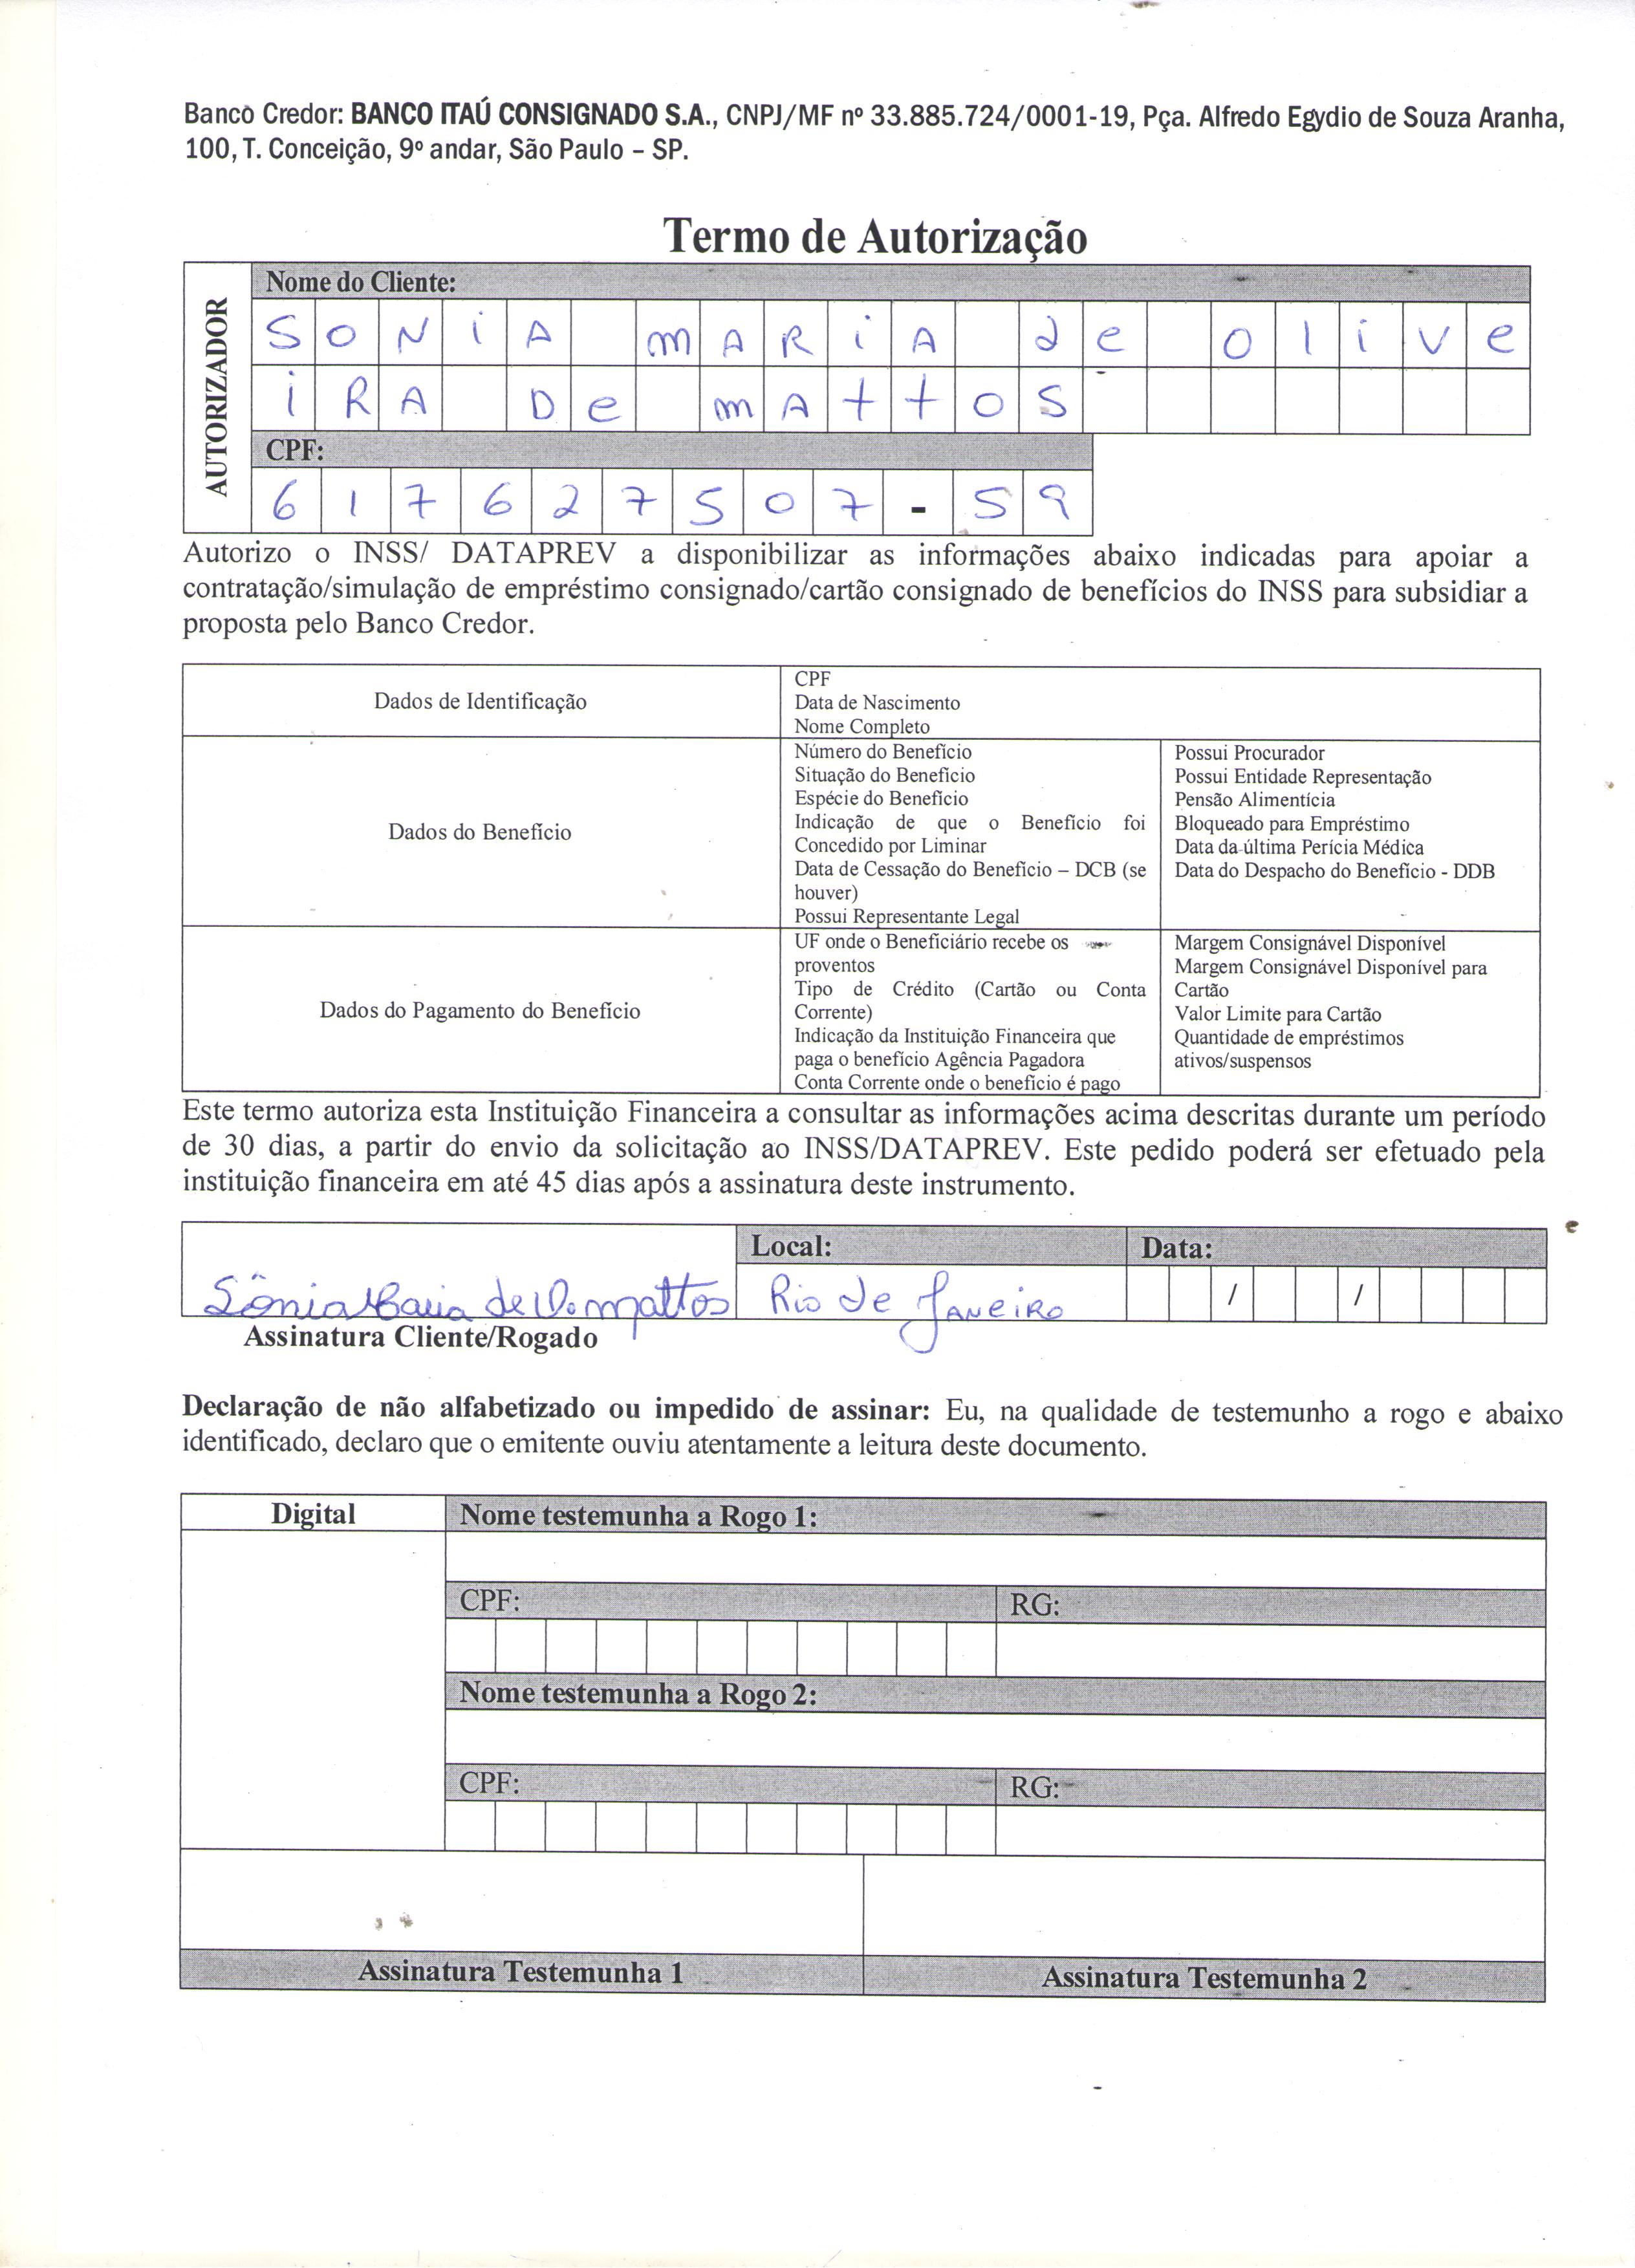 Banco Credor: BANCO ITAÚ CONSIGNADO S.A., CNPJ/MF nº 33.885.724/0001-19, Pça. Alfredo Egydio de Souza Aranha,
100, T. Conceição, 9º andar, São Paulo – SP.
Termo de Autorização
AUTORIZADOR
Nome do Cliente:
SONiA mARiA de olive
iRA De mAttoS
CPF:
617627507-59
Autorizo o INSS/ DATAPREV a disponibilizar as informações abaixo indicadas para apoiar a
contratação/simulação de empréstimo consignado/cartão consignado de benefícios do INSS para subsidiar a
proposta pelo Banco Credor.
Dados de Identificação
CPF
Data de Nascimento
Nome Completo
Dados do Benefício
Número do Benefício
Situação do Benefício
Espécie do Benefício
Indicação de que o Benefício foi
Concedido por Liminar
Data de Cessação do Benefício – DCB (se
houver)
Possui Representante Legal
Possui Procurador
Possui Entidade Representação
Pensão Alimentícia
Bloqueado para Empréstimo
Data da última Perícia Médica
Data do Despacho do Benefício - DDB
Dados do Pagamento do Benefício
UF onde o Beneficiário recebe os
proventos
Tipo de Crédito (Cartão ou Conta
Corrente)
Indicação da Instituição Financeira que
paga o benefício Agência Pagadora
Conta Corrente onde o benefício é pago
Margem Consignável Disponível
Margem Consignável Disponível para
Cartão
Valor Limite para Cartão
Quantidade de empréstimos
ativos/suspensos
Este termo autoriza esta Instituição Financeira a consultar as informações acima descritas durante um período
de 30 dias, a partir do envio da solicitação ao INSS/DATAPREV. Este pedido poderá ser efetuado pela
instituição financeira em até 45 dias após a assinatura deste instrumento.
Local: Data:
Sônia Maria de O. Mattos Rio de JANEiRo / /
Assinatura Cliente/Rogado
Declaração de não alfabetizado ou impedido de assinar: Eu, na qualidade de testemunho a rogo e abaixo
identificado, declaro que o emitente ouviu atentamente a leitura deste documento.
Digital
Nome testemunha a Rogo 1:
CPF: RG:
Nome testemunha a Rogo 2:
CPF: RG:
Assinatura Testemunha 1 Assinatura Testemunha 2